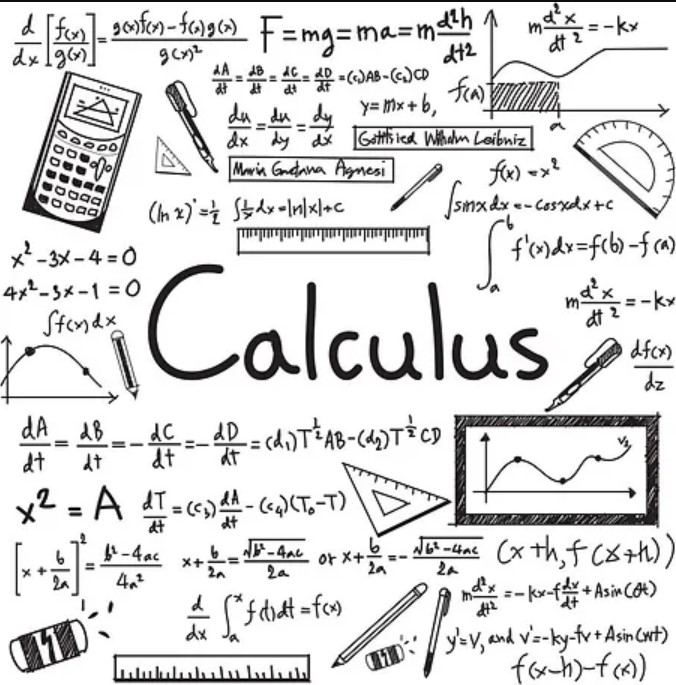 d/dx [f(x)/g(x)] = g(x)f(x) - f(x)g(x) / g(x)²
F = mg = ma = m d²h/dt²
m d²x/dt² = -kx
dA/dt = dB/dt = dC/dt = dD/dt = (c₁)AB - (c₂)CD
y = mx + b,
f(a)
a
du/dx = du/dy = dy/dx
Gottfried Wilhelm Leibniz
Maria Gaetana Agnesi
f(x) = x²
(ln x)' = 1/2
∫ 1/x dx = ln|x| + c
∫sinxdx = -cosxdx + c
∫ₐᵇ f'(x)dx = f(b) - f(a)
x² - 3x - 4 = 0
4x² - 3x - 1 = 0
∫f(x)dx
Calculus
m d²x/dt² = -kx
df(x)/dz
dA/dt = dB/dt = - dC/dt = - dD/dt = (d₁)T^½ AB - (d₂)T^½ CD
x² = A
dT/dt = (c₃) dA/dt - (c₄)(T₀ - T)
[x + b/2a]² = b² - 4ac / 4a²
x + b/2a = √(b² - 4ac) / 2a or x + b/2a = - √(b² - 4ac) / 2a
(x+h, f(x+h))
d/dx ∫ₐˣ f(t)dt = f(x)
y' = v, and v' = -ky - fv + Asin(wt)
f(x-h) - f(x))